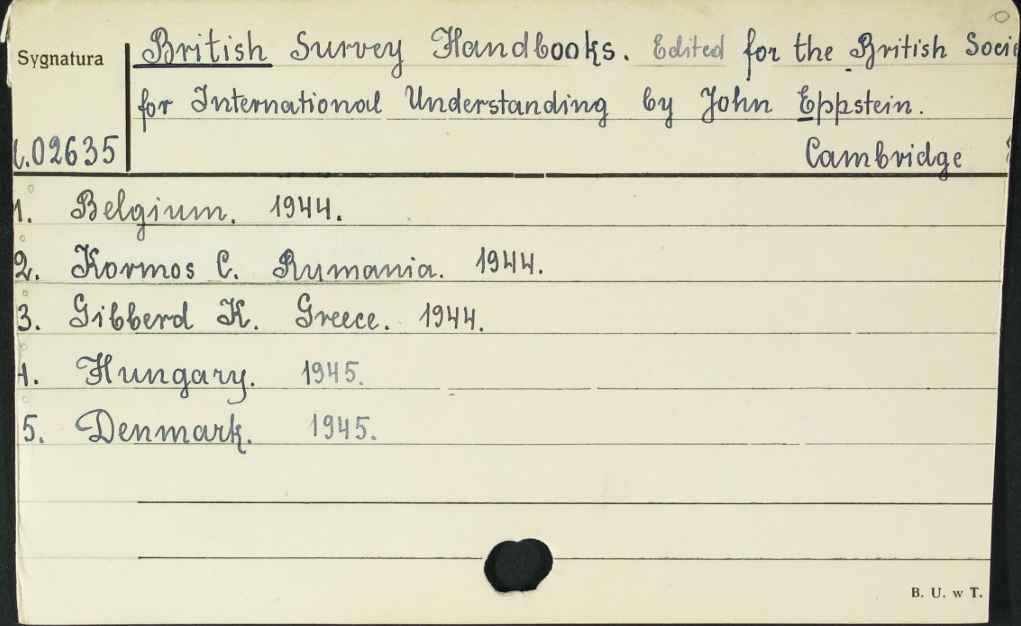 Sygnatura
British Survey Handbooks. Edited for the British Socie
for International Understanding by John Eppstein.
02635
Cambridge
1. Belgium. 1944.
2. Kormos C. Rumania. 1944.
3. Gibberd K. Greece. 1944.
4. Hungary. 1945.
5. Denmark. 1945.
B. U. w T.